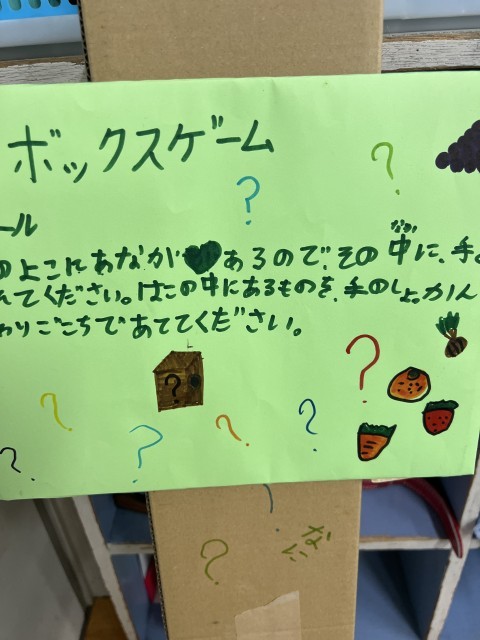 ボックスゲーム
ール
のよこにあながあるので、その中に、手
なか
れてください。はこの中にあるものを、手のしょっかん
わりごこちであててください。
?
?
?
?
?
?
?
?
?
?
?
なに